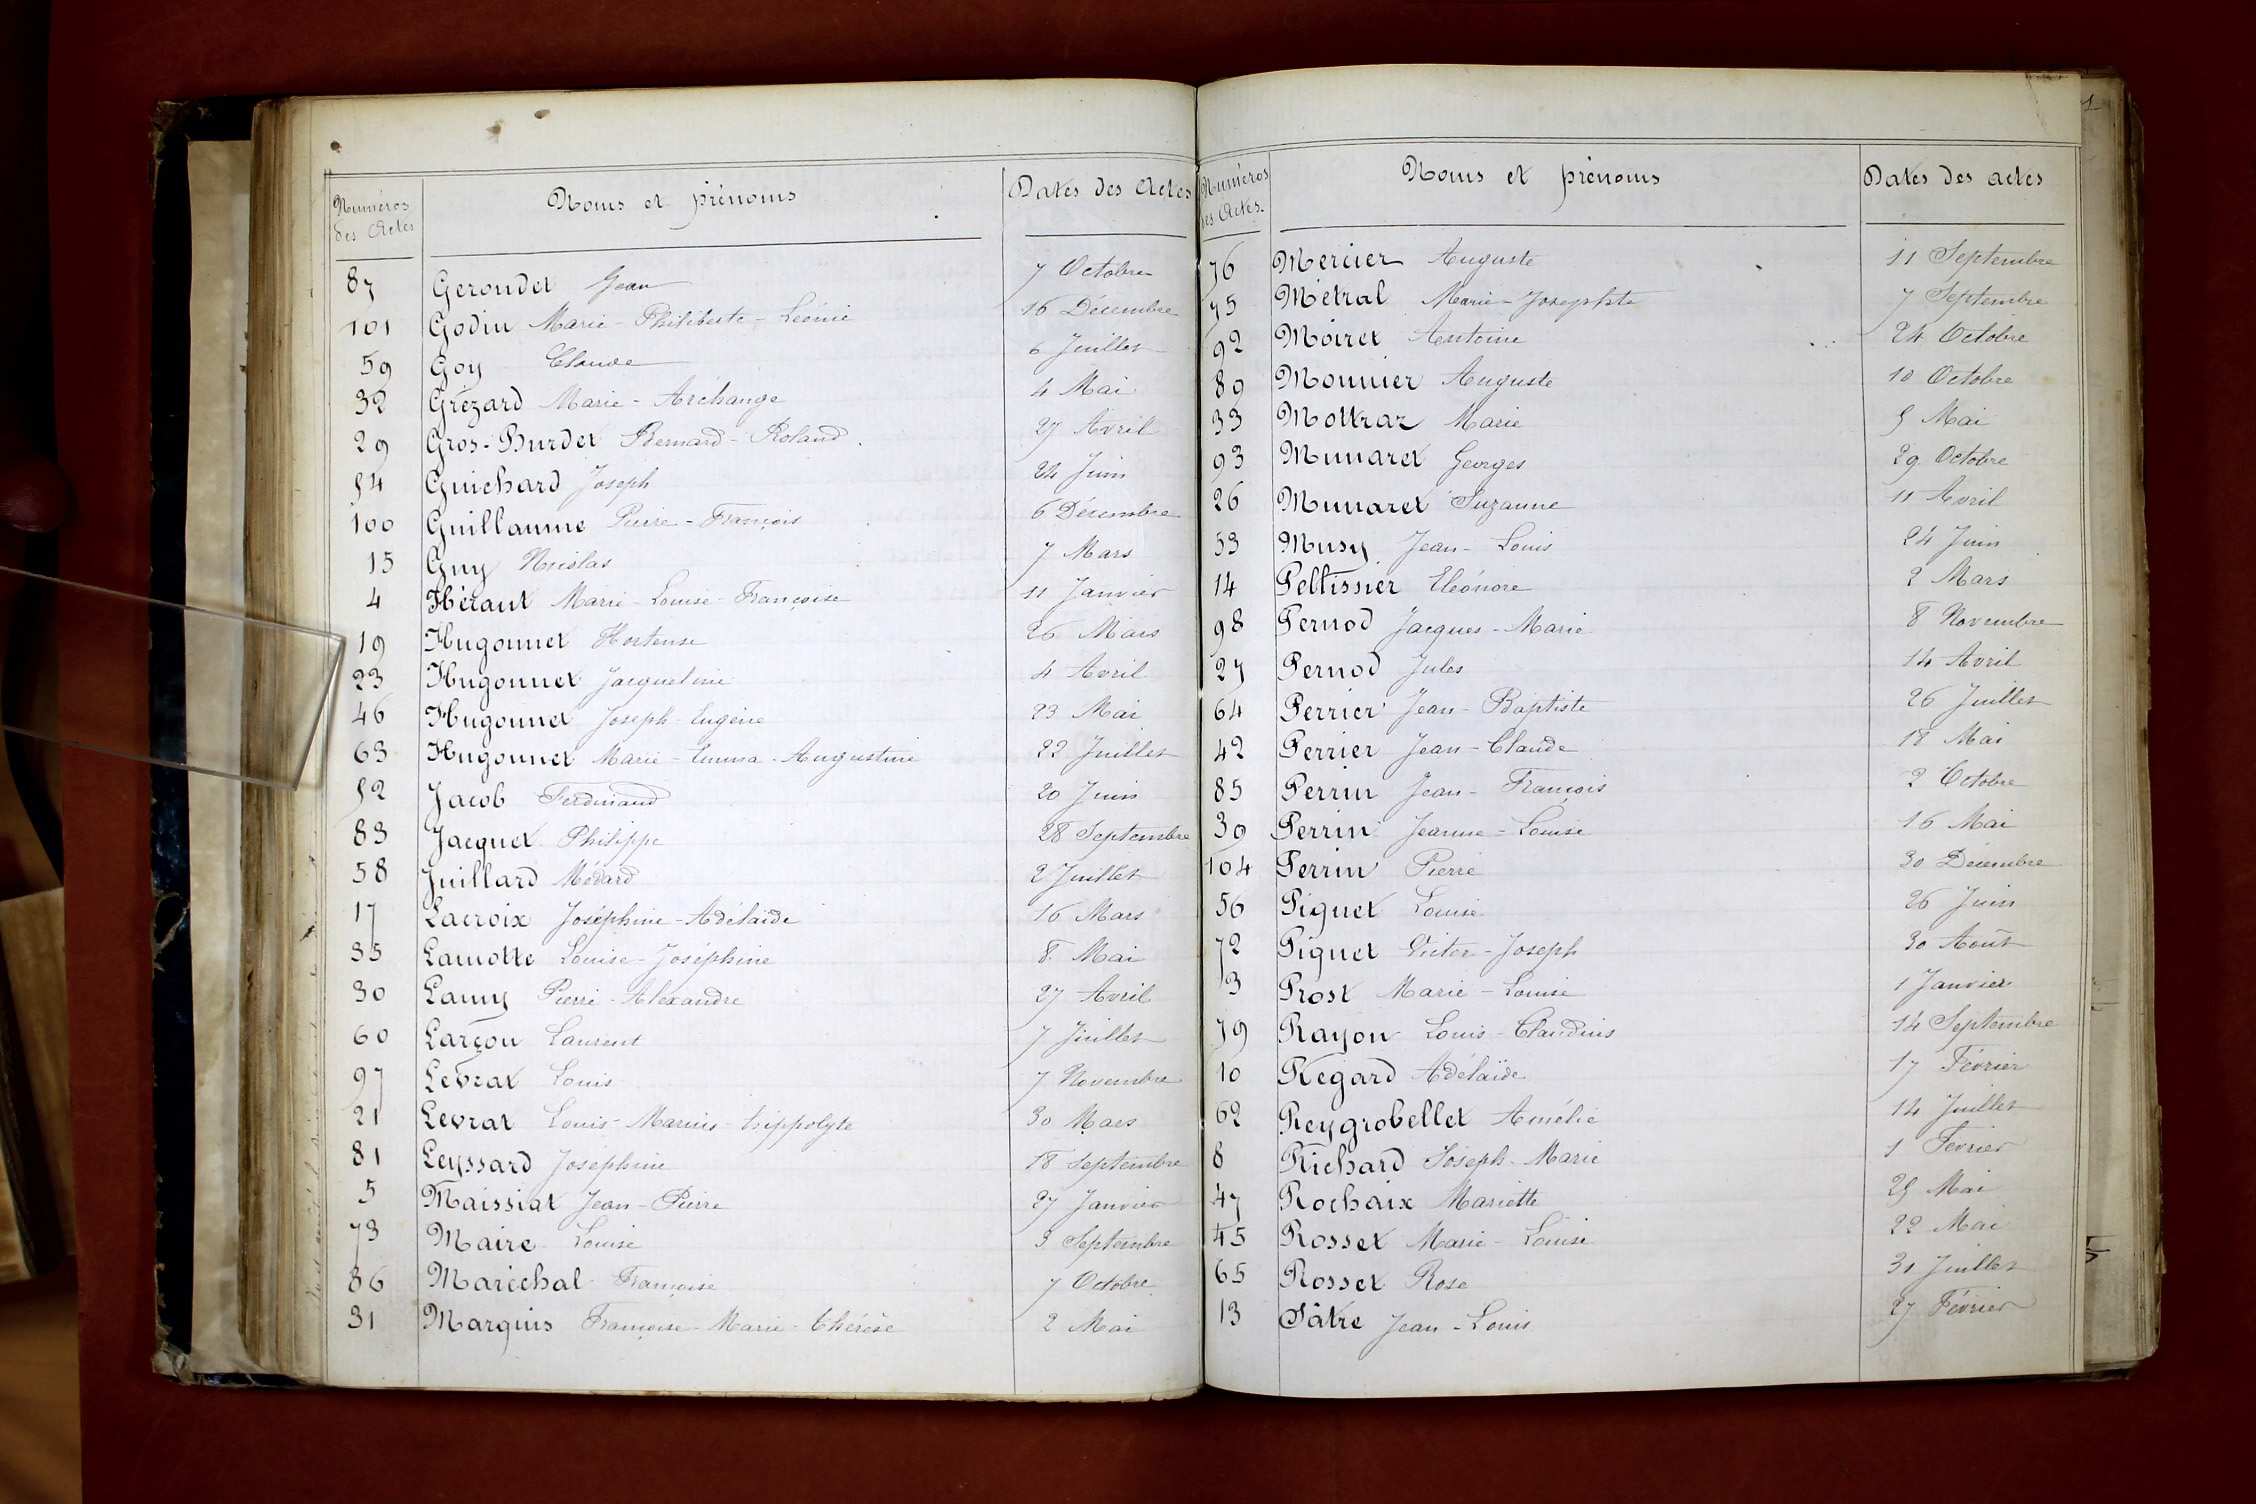 Numéros des Actes Noms et prénoms Dates des Actes
87 Geroudet Jean 7 Octobre
101 Godin Marie-Philiberte-Léonie 16 Décembre
59 Goy Claude 6 Juillet
32 Grézard Marie-Archange 4 Mai
29 Gros-Burdet Bernard-Roland. 27 Avril
54 Guichard Joseph 24 Juin
100 Guillaume Pierre-François 6 Décembre
15 Guy Nicolas 7 Mars
4 Héraut Marie-Louise-Françoise 11 Janvier
19 Hugonnet Hortense 26 Mars
23 Hugonnet Jacqueline 4 Avril
46 Hugonnet Joseph-Eugène 23 Mai
63 Hugonnet Marie-Emma-Augustine 22 Juillet
52 Jacob Ferdinand 20 Juin
83 Jacquet Philippe 28 Septembre
58 Juillard Médard 2 Juillet
17 Lacroix Joséphine-Adélaïde 16 Mars
35 Lamotte Louise-Joséphine 8 Mai
30 Lamy Pierre-Alexandre 27 Avril
60 Larçon Laurent 7 Juillet
97 Levrat Louis 7 Novembre
21 Levrat Louis-Marius-hippolyte 30 Mars
81 Leyssard Josephine 18 Septembre
5 Maissiat Jean-Pierre 27 Janvier
73 Maire Louise 3 Septembre
86 Maréchal Françoise 7 Octobre
31 Marquis Françoise-Marie-Thérèse 2 Mai
Numéros des Actes. Noms et prénoms Dates des actes
76 Mercier Auguste 11 Septembre
75 Métral Marie-Josephte 7 Septembre
92 Moiret Antoine 24 Octobre
89 Mounier Auguste 10 Octobre
33 Mottraz Marie 5 Mai
93 Munaret Georges 29 Octobre
26 Munaret Suzanne 11 Avril
53 Musy Jean-Louis 24 Juin
14 Peltissier Eléonore 2 Mars
98 Pernod Jacques-Marie 8 Novembre
27 Pernod Jules 14 Avril
64 Perrier Jean-Baptiste 26 Juillet
42 Perrier Jean-Claude 18 Mai
85 Perrin Jean-François 2 Octobre
39 Perrin Jeanne-Louise 16 Mai
104 Perrin Pierre 30 Décembre
56 Piquet Louise 26 Juin
72 Piquet Victor-Joseph 30 Août
3 Prost Marie-Louise 1 Janvier
79 Rayon Louis-Claudius 14 Septembre
10 Regard Adélaïde 17 Février
62 Reygrobellet Amélie 14 Juillet
8 Richard Joseph-Marie 1 Février
47 Rochaix Mariette 25 Mai
45 Rosset Marie-Louise 22 Mai
65 Rosset Rose 31 Juillet
13 Sâtre Jean-Louis 27 Février